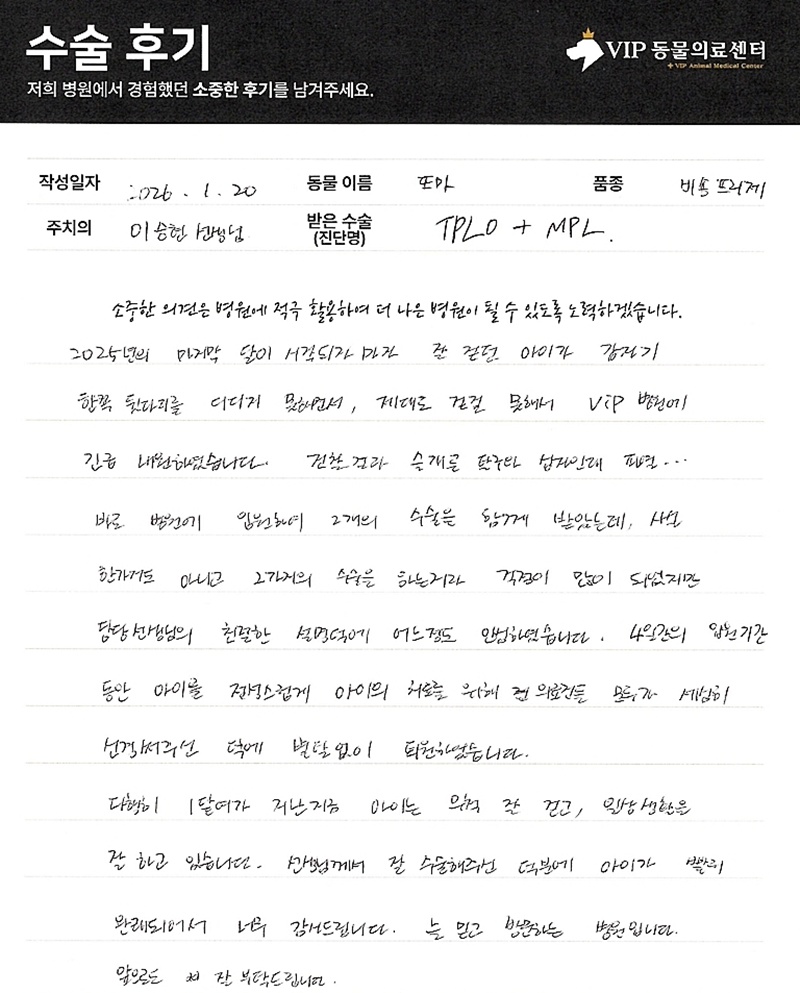 수술 후기
저희 병원에서 경험했던 소중한 후기를 남겨주세요.
VIP 동물의료센터
+ VIP Animal Medical Center
작성일자 2026 . 1 . 20 동물 이름 또마 품종 비숑 프리제
주치의 이승현 선생님 받은 수술 (진단명) TPLO + MPL.
소중한 의견은 병원에 적극 활용하여 더 나은 병원이 될 수 있도록 노력하겠습니다.
2025년의 마지막 달이 시작되자 마자 잘 걷던 아이가 갑자기
한쪽 뒷다리를 디디지 못하면서, 제대로 걷질 못해서 VIP 병원에
긴급 내원하였습니다. 진찰 결과 슬개골 탈구와 십자인대 파열...
바로 병원에 입원하여 2개의 수술을 함께 받았는데, 사실
한가지도 아니고 2가지의 수술을 하는거라 걱정이 많이 되었지만
담당선생님의 친절한 설명덕에 어느정도 안심하였습니다. 4일간의 입원기간
동안 아이를 정성스럽게 아이의 치료를 위해 전 의료진들 모두가 세심히
신경써주신 덕에 별탈없이 퇴원하였습니다.
다행히 1달여가 지난지금 아이는 무척 잘 걷고, 일상생활을
잘 하고 있습니다. 선생님께서 잘 수술해주신 덕분에 아이가 빨리
완쾌되어서 너무 감사드립니다. 늘 믿고 방문하는 병원입니다.
앞으로도 잘 부탁드립니다.